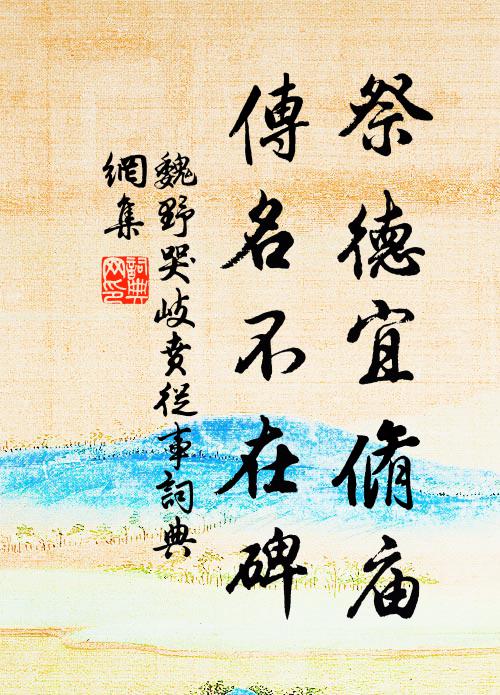 祭德宜脩庙
傳名不在碑
魏野哭岐賁從事詞典
網集
詞典
网印